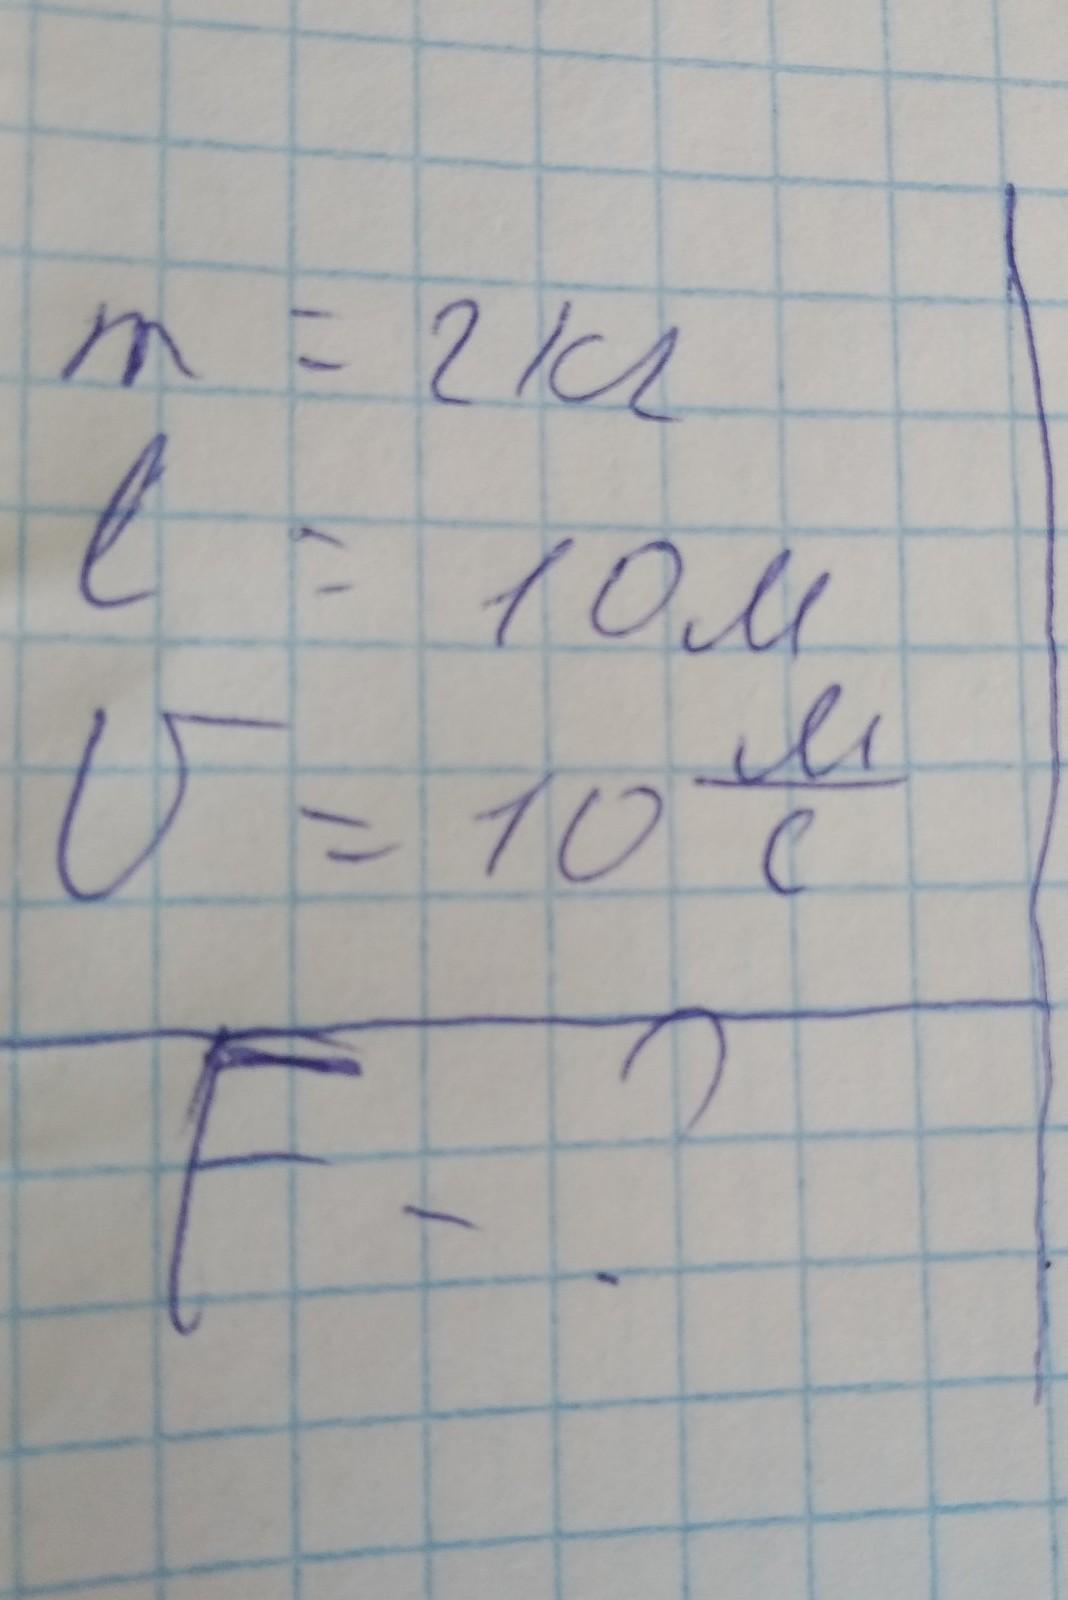 m = 2 кг
l = 10 м
υ = 10 м/с
F - ?